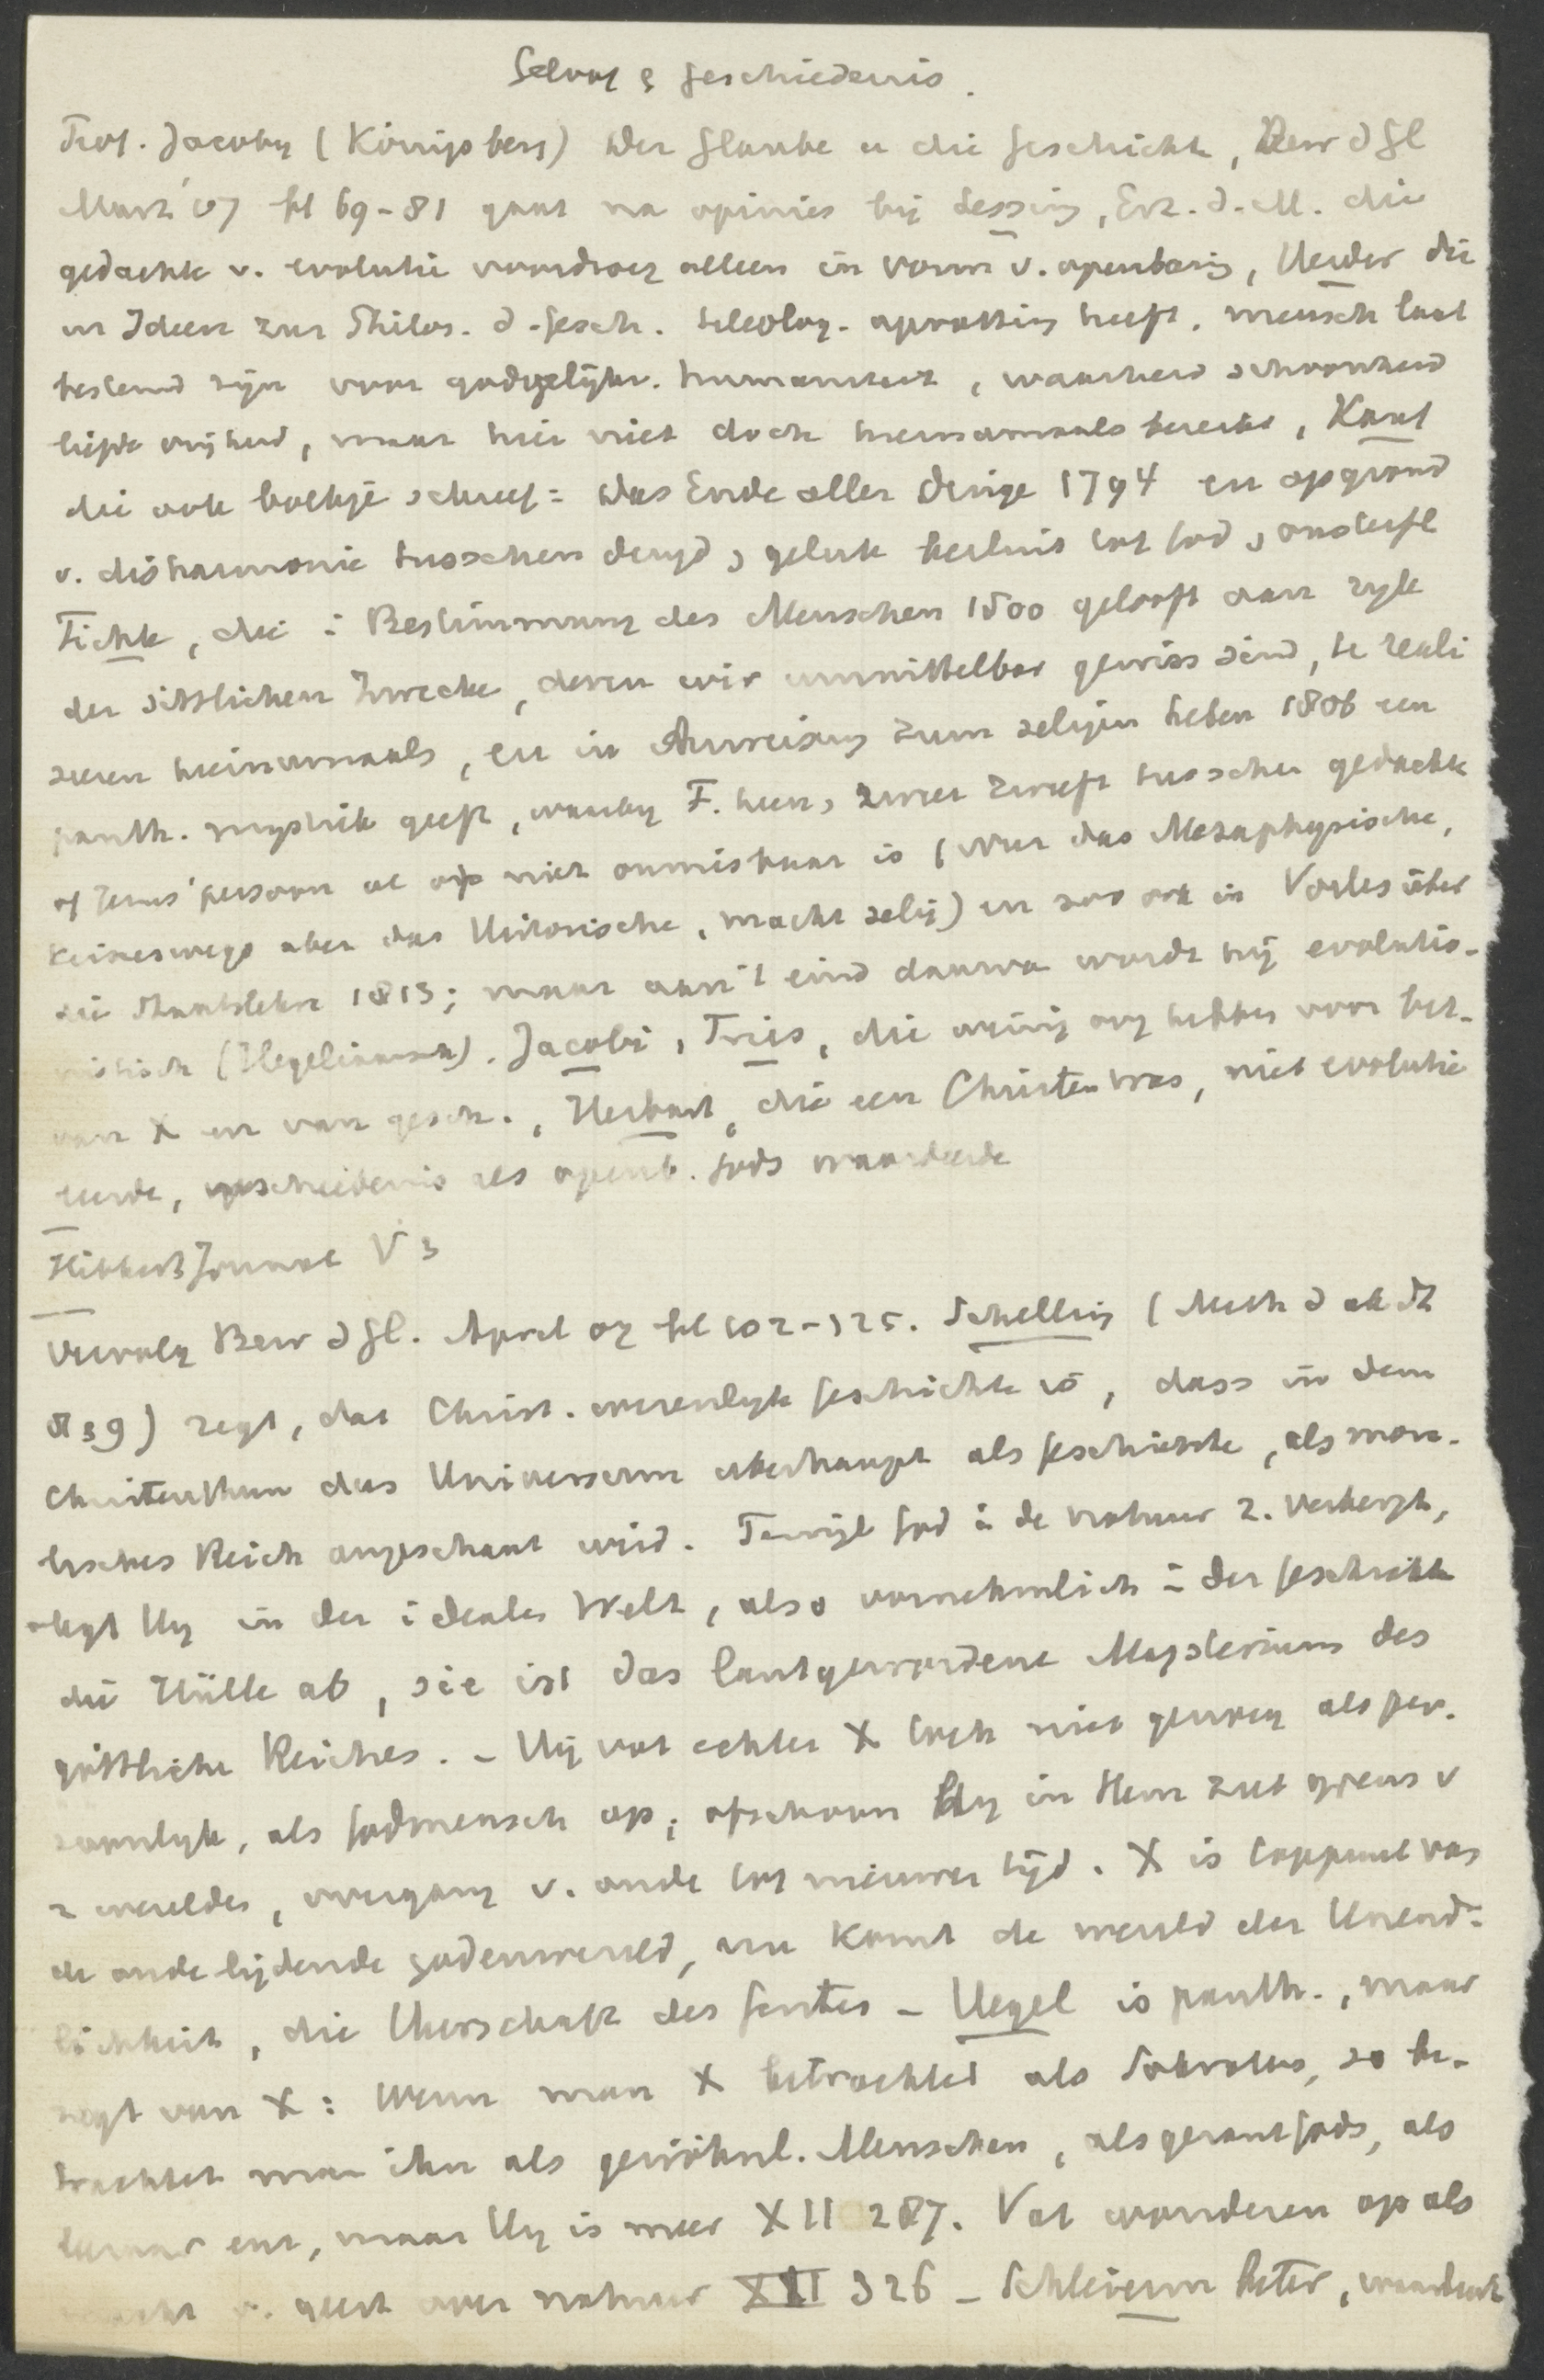 Geloof & Geschiedenis.
Prof. Jacoby (Königsberg) Der Glaube u die Geschichte, Bew d Gl
Marz '07 bl 69-81 gaat na opinies bij Lessing, Erz. d. M. die
gedachte v. evolutie voordroeg alleen in vorm v. openbaring, Herder die
in Ideen zur Philos. d. Gesch. teleolog. opvatting heeft, mensch laat
bestemd zijn voor godgelijke humaniteit, waarheid schoonheid
liefde vrijheid, maar hier niet doch hiernamaals bereikt, Kant
die ook boekje schreef: Das Ende aller Dinge 1794 en op grond
v. disharmonie tusschen deugd & geluk besluit tot God & onsterfl
Fichte, die i Bestimmung des Menschen 1800 gelooft aan ryk
der sittlichen Zwecke, deren wir unmittelbar gewiss sind, te reali
seeren hiernamaals, en in Anweisung zum seligen Leben 1806 een
panth. mystiek geeft, waarby F. heen & weer zweeft tusschen gedachte
of Jezus' persoon al of niet onmisbaar is (Nur das Metaphysische,
keineswegs aber das Historische, macht selig) en zoo ook in Vorles über
die Staatslehre 1813; maar aan 't eind daarvan wordt hij evolutio-
nistisch (Hegeliaansch). Jacobi, Fries, die weinig oog hebben voor bet.
van X en van gesch., Herbart, die een Christen was, niet evolutie
leerde, geschiedenis als openb. Gods waardeerde
Hibbert Journal V 3
Vervolg Bew d Gl. April 07 bl 102-125. Schelling (Meth d ak St
S 39) zegt, dat Christ. wezenlyk Geschichte is, dass in dem
Christenthum das Universum überhaupt als Geschichte, als mora-
lisches Reich angeschaut wird. Terwijl God i de natuur z. verbergt,
legt Hy in der idealen Welt, also vornehmlich i der Geschichte
die Hülle ab, sie ist das lautgewordene Mysterium des
göttlichen Reiches. - Hij vat echter X toch niet genoeg als per-
soonlyk, als Godmensch op; ofschoon hy in Hem ziet grens v
2 werelden, overgang v. oude tot nieuwe tijd. X is toppunt van
de oude lijdende godenwereld, nu komt de wereld der Unend-
lichkeit, die Herrschaft des Geistes - Hegel is panth., maar
zegt van X: Wenn man X betrachtet als Sokrates, so be-
trachtet man ihn als gewöhnl. Menschen, als gezant Gods, als
leeraar enz, maar Hy is meer XII 287. Vat wonderen op als
macht v. geest over natuur XII 326 - Schleierm beter, waardeert